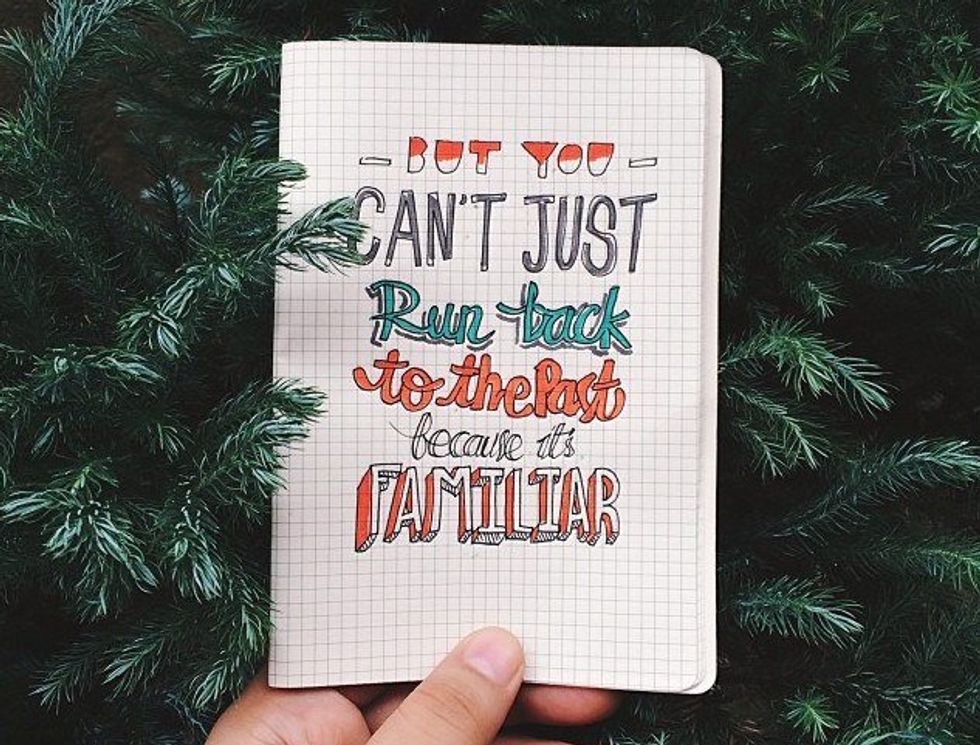 - BUT YOU -
CAN'T JUST
Run back
to the Past
because it's
FAMILIAR